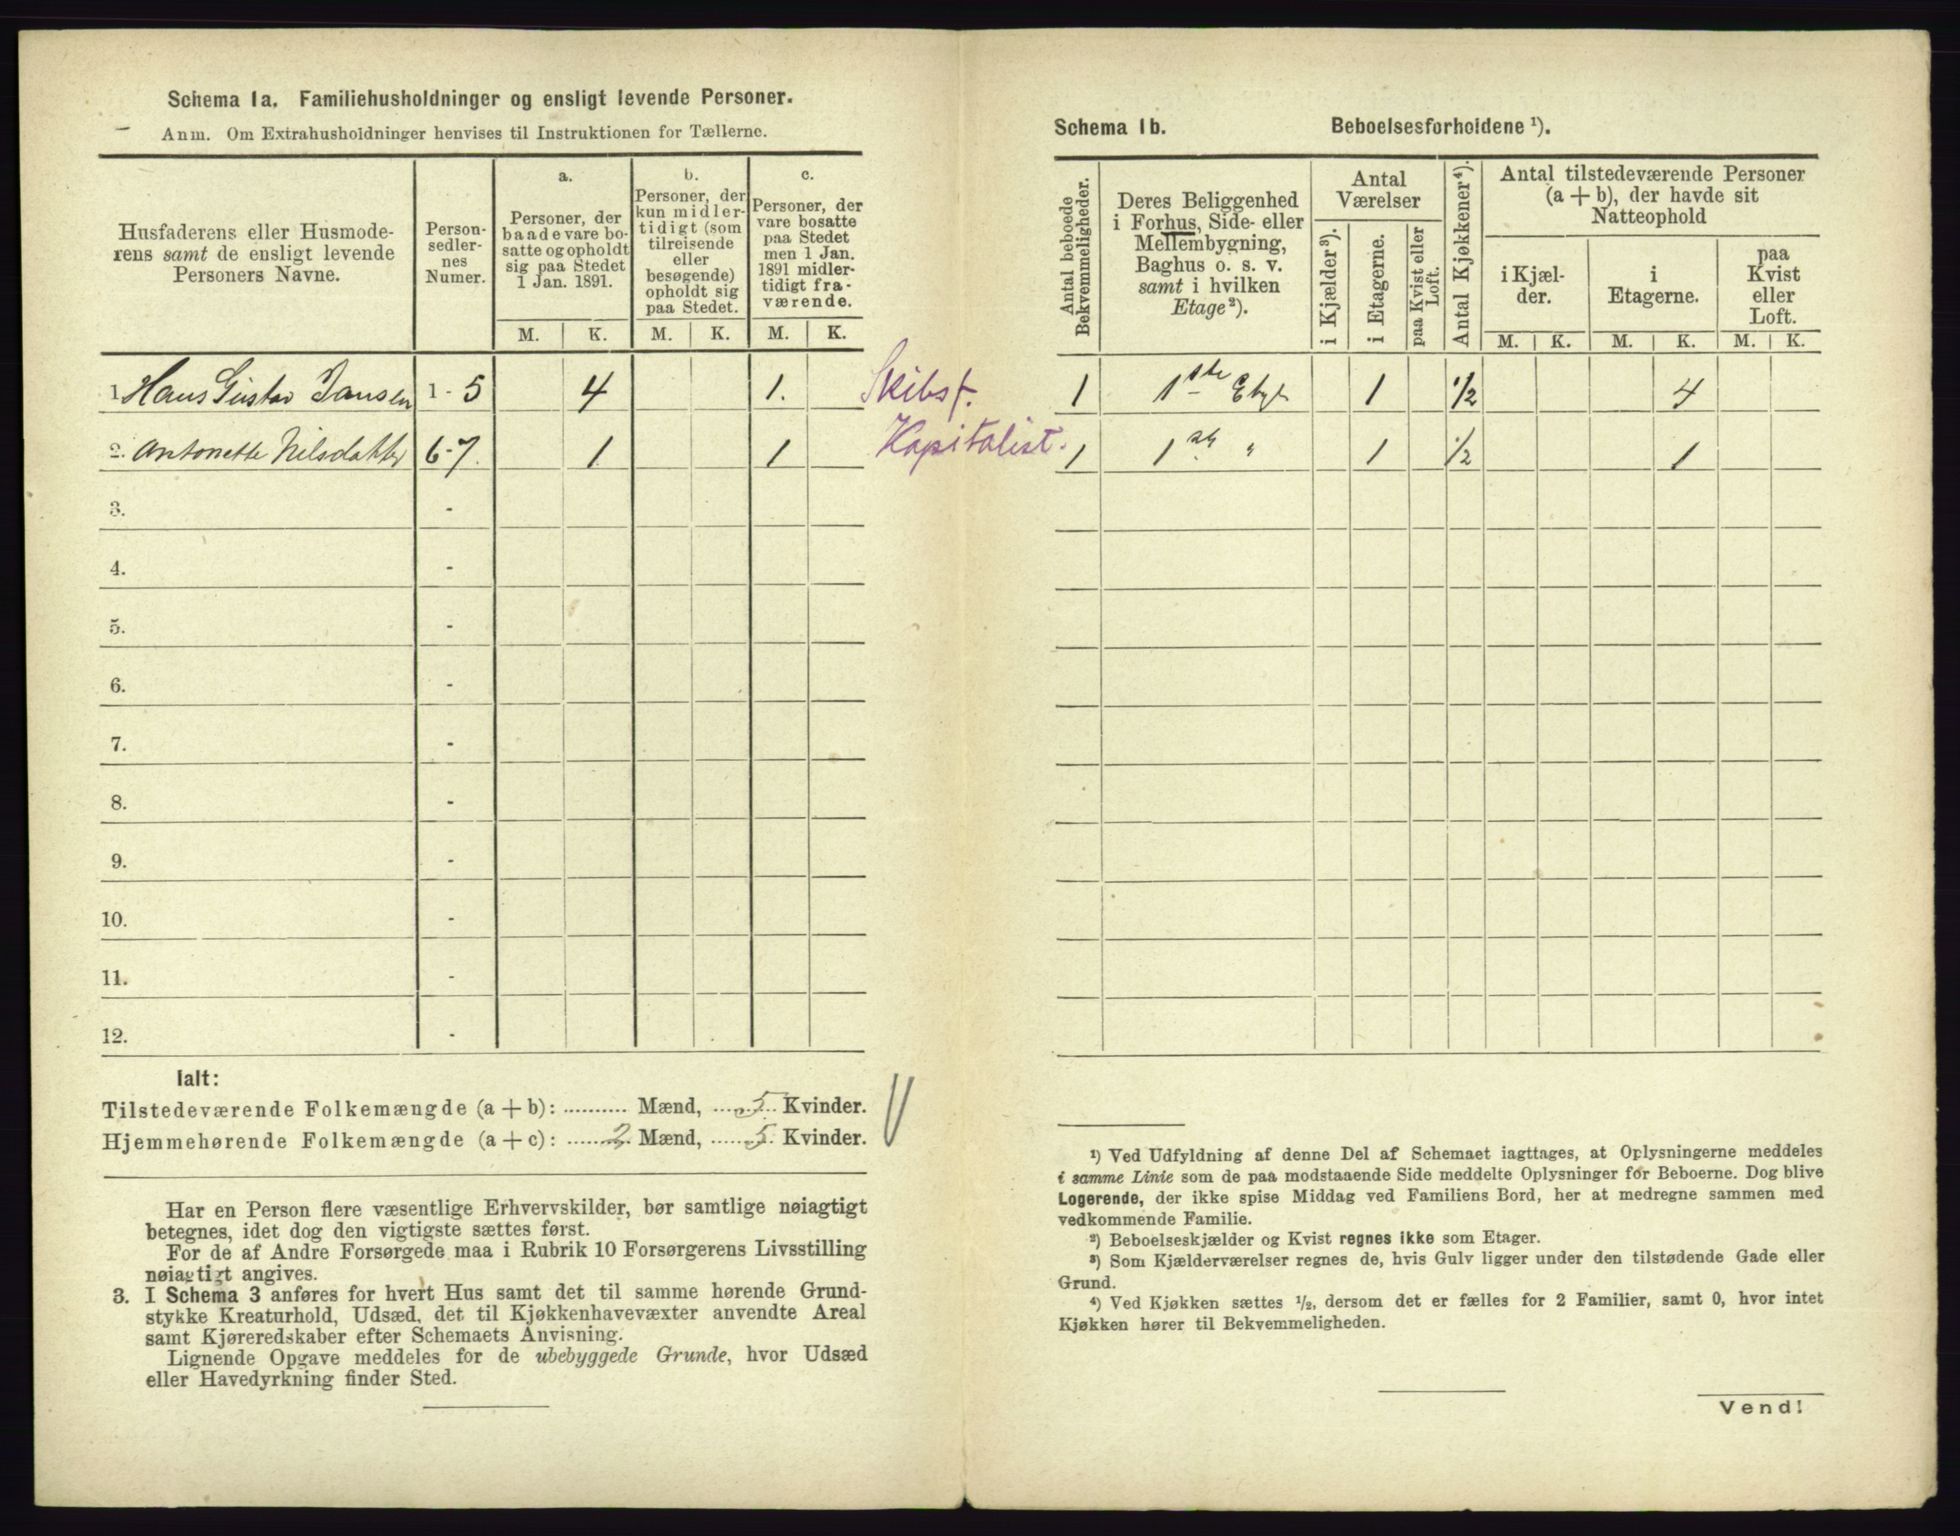 Schema 1a. Familiehusholdninger og ensligt levende Personer.
Anm. Om Extrahusholdninger henvises til Instruktionen for Tællerne.
Husfaderens eller Husmode-
rens samt de ensligt levende
Personers Navne.
Person-
sedler-
nes
Numer.
a.
Personer, der
baade vare bo-
satte og opholdt
sig paa Stedet
1 Jan. 1891.
b.
Personer, der
kun midler-
tidigt (som
tilreisende
eller
besøgende)
opholdt sig
paa Stedet.
c.
Personer, der
vare bosatte
paa Stedet
men 1 Jan.
1891 midler-
tidigt fra-
værende.
M. K. M. K. M. K.
1. Hans Gustav Jansen 1 - 5 4 1. Skibsf.
2. Antonette Nilsdatter 6-7. 1 1 Kapitalist.
3. -
4. -
5. -
6. -
7. -
8. -
9. -
10. -
11. -
12. -
Ialt:
Tilstedeværende Folkemængde (a + b): .......... Mænd, 5 Kvinder.
Hjemmehørende Folkemængde (a + c): 2 Mænd, 5 Kvinder.
Har en Person flere væsentlige Erhvervskilder, bør samtlige nøiagtigt
betegnes, idet dog den vigtigste sættes først.
For de af Andre Forsørgede maa i Rubrik 10 Forsørgerens Livsstilling
nøiagtigt angives.
3. I Schema 3 anføres for hvert Hus samt det til samme hørende Grund-
stykke Kreaturhold, Udsæd, det til Kjøkkenhavevæxter anvendte Areal
samt Kjøreredskaber efter Schemaets Anvisning.
Lignende Opgave meddeles for de ubebyggede Grunde, hvor Udsæd
eller Havedyrkning finder Sted.
Schema 1b. Beboelsesforholdene ¹).
Antal beboede
Bekvemmeligheder.
Deres Beliggenhed
i Forhus, Side- eller
Mellembygning,
Baghus o. s. v.
samt i hvilken
Etage²).
Antal
Værelser
i Kjælder³).
i Etagerne.
paa Kvist eller
Loft.
Antal Kjøkkener⁴).
Antal tilstedeværende Personer
(a + b), der havde sit
Natteophold
i Kjæl-
der.
i
Etagerne.
paa
Kvist
eller
Loft.
M. K. M. K. M. K.
1 1ste Etage 1 1/2 4
1 1ste " 1 1/2 1
¹) Ved Udfyldning af denne Del af Schemaet iagttages, at Oplysningerne meddeles
i samme Linie som de paa modstaaende Side meddelte Oplysninger for Beboerne. Dog blive
Logerende, der ikke spise Middag ved Familiens Bord, her at medregne sammen med
vedkommende Familie.
²) Beboelseskjælder og Kvist regnes ikke som Etager.
³) Som Kjælderværelser regnes de, hvis Gulv ligger under den tilstødende Gade eller
Grund.
⁴) Ved Kjøkken sættes ½, dersom det er fælles for 2 Familier, samt 0, hvor intet
Kjøkken hører til Bekvemmeligheden.
Vend!